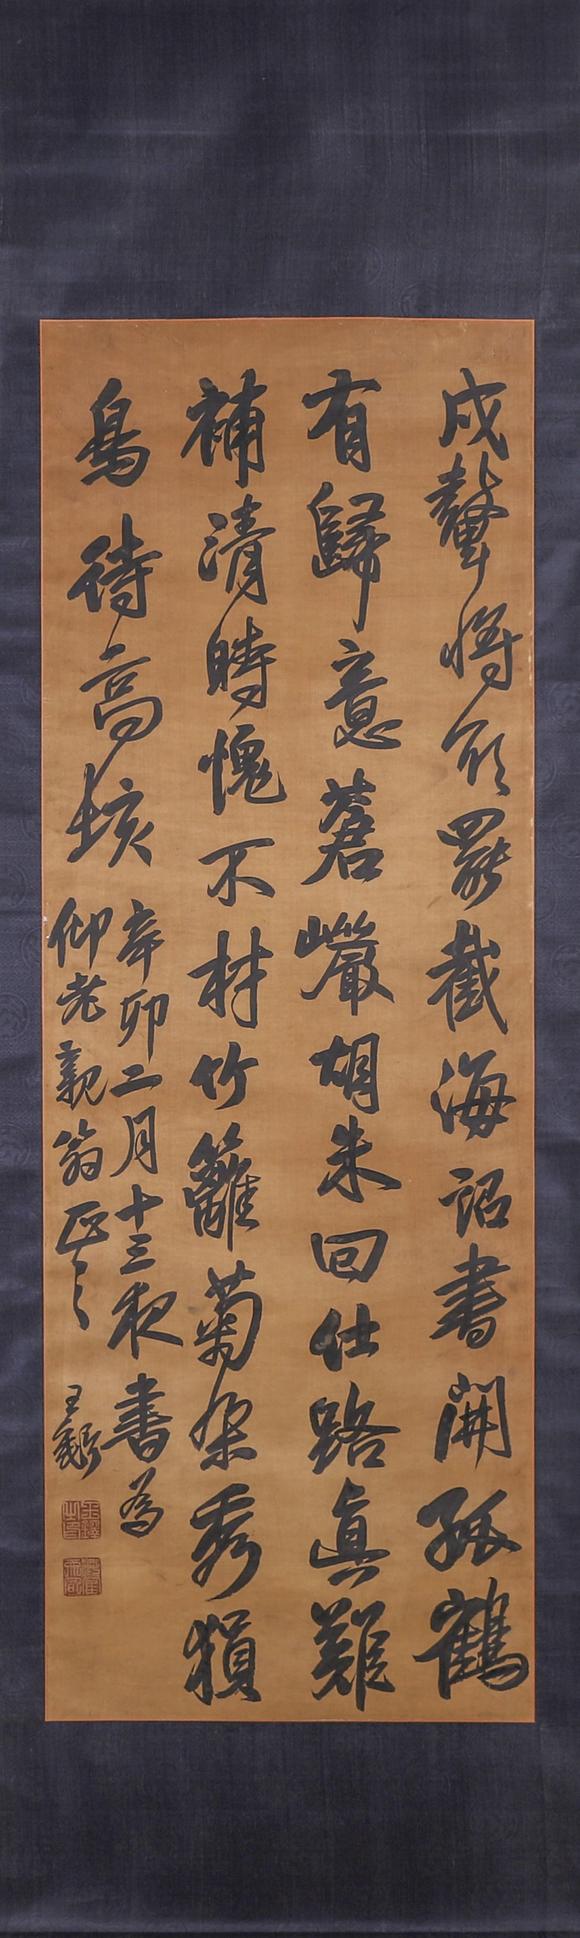 戍鼙將欲罷截海詔書開孤鶴
有歸意蒼巖胡朱回仕路真難
補清時愧不材竹籬菊朵秀猿
鳥待高垓
辛卯二月十三夜書為
仰老親翁正之
王鐸
王鐸之印